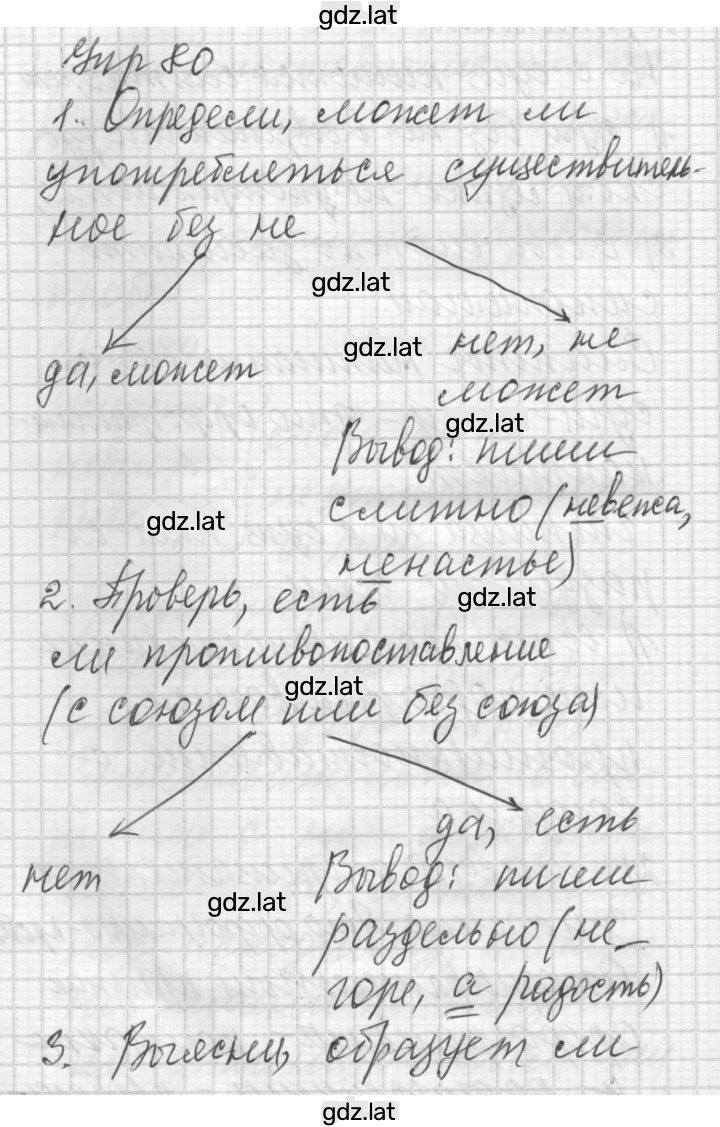 gdz.lat
Упр 80
1. Определи, может ли
употребляться существитель-
ное без не
gdz.lat
gdz.lat
нет, не
да, может
может
gdz.lat
Вывод: пиши
слитно (невежа,
gdz.lat
ненастье)
2. Проверь, есть
gdz.lat
ли противопоставление
gdz.lat
(с союзом или без союза)
да, есть
нет
Вывод: пиши
gdz.lat
раздельно (не
горе, а радость)
3. Выясни, образует ли
gdz.lat